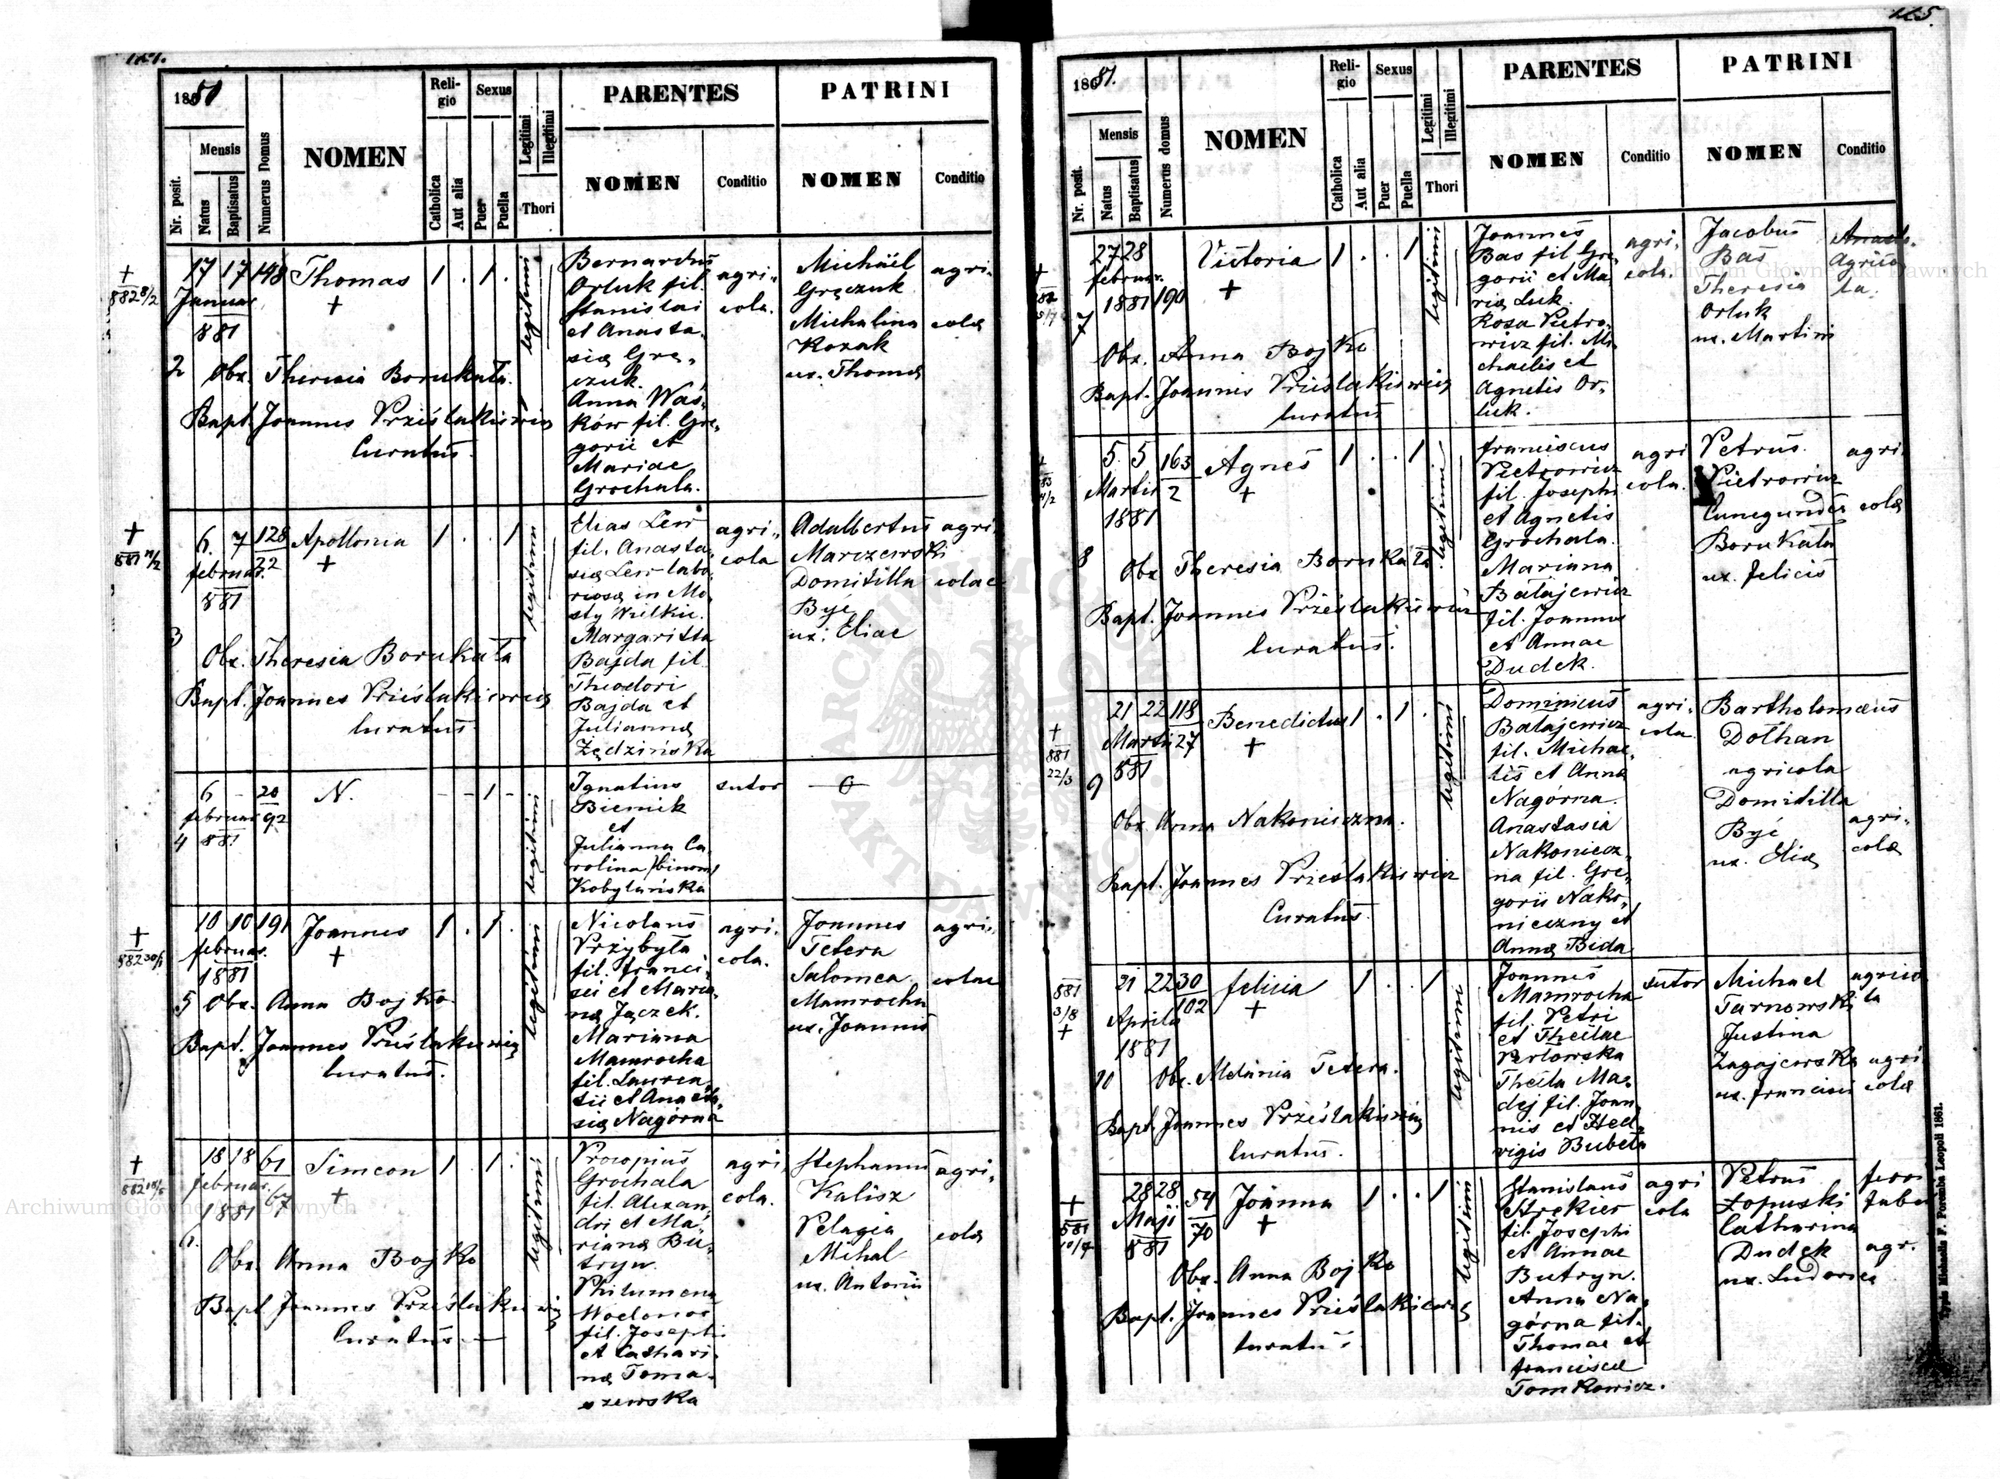 124.
1881
Nr. posit.
Mensis
Natus
Baptisatus
Numerus Domus
NOMEN
Religio
Catholica
Aut alia
Sexus
Puer
Puella
Legitimi
Illegitimi
Thori
PARENTES
NOMEN
Conditio
PATRINI
NOMEN
Conditio
2
17 17 148 Thomas 1 . 1 .
Januar.
881
+
Obx. Theresia Borukała
Bapt. Joannes Prześlakiewicz
Curatus
legitimi
Bernardus
Orluk fil.
Stanislai
et Anasta-
siæ Grę-
czuk.
Anna Waś-
ków fil. Gre-
gorii et
Mariae
Grochala.
agri-
cola.
Michael
Gręczuk
Michalina
Kozak
ux. Thomæ
agri-
colæ
3
6. 7 128/22 Apollonia 1 . . 1
februar.
881
+
Obx. Theresia Borukała
Bapt. Joannes Prześlakiewicz
Curatus
legitimi
Elias Lew
fil. Anasta-
siæ Lew labo-
riosæ in Mo-
sty Wielkie.
Margaritta
Bajda fil.
Theodori
Bajda et
Juliannæ
agri-
cola
Adalbertus
Marczewski
Domitilla
Być
ux. Eliae
agri-
colae
4
6 - 20/92 N. - - 1 -
februar
881
legitimi
Ignatius
Biernik
et
Julianna Ca-
rolina /binom/
Kobylańska
sutor
5
10 10 191 Joannes 1 . 1 .
februar.
1881
+
Obx. Anna Bojko
Bapt. Joannes Prześlakiewicz
Curatus.
legitimi
Nicolaus
Przybyła
fil. Franci-
sci et Maria-
næ Jączek.
Marianna
Mamrocha
fil. Lauren-
tii et Anasta-
siæ Nagórna
agri-
cola.
Joannes
Tetera
Salomea
Mamrocha
ux. Joannis
agri-
colae
6.
18 18 61/67 Simeon 1 . 1 .
februar.
1881
+
Obx. Anna Bojko
Bapt. Joannes Prześlakiewicz
Curatus.
legitimi
Procopius
Grochala
fil. Alexan-
dri et Ma-
riannæ Bu-
tryn.
Philumena
fil. Josephi
et Cathari-
næ Toma-
szewska
agri-
cola.
Stephanus
Kalisz
Pelagia
Mihal
ux. Antonii
agri-
colæ
125.
1881.
Nr. posit.
Mensis
Natus
Baptisatus
Numerus domus
NOMEN
Religio
Catholica
Aut alia
Sexus
Puer
Puella
Legitimi
Illegitimi
Thori
PARENTES
NOMEN
Conditio
PATRINI
NOMEN
Conditio
7
27 28 190 Victoria 1 . . 1
februar.
1881
+
Obx. Anna Bojko
Bapt. Joannes Prześlakiewicz
Curatus
legitimi
Joannes
Bas fil. Gre-
gorii et Ma-
riæ Luk.
Rosa Pietro-
wicz fil. Mi-
chaelis et
Agnetis Or-
luk.
agri-
cola.
Jacobus
Bas
Theresia
Orluk
ux. Martini
Agrico-
la.
8
5 5 163/2 Agnes 1 . . 1
Martii
1881
+
Obx Theresia Borukała
Bapt. Joannes Prześlakiewicz
Curatus.
legitimi
Franciscus
Pietrowicz
fil. Josephi
et Agnetis
Grochala.
Marianna
Batajewicz
fil. Joannis
et Annae
Dudek.
agri
cola.
Petrus
Pietrowicz
Cunegundes
Borukała
ux. Felicis
agri-
colæ
9
21 22 118/27 Benedictus 1 . 1 .
Martii
881
+
Obx. Anna Nakonieczna.
Bapt. Joannes Prześlakiewicz
Curatus.
legitimi
Dominicus
Batajewicz
fil. Michae-
lis et Annæ
Nagórna.
Anastasia
Nakoniecz-
na fil. Gre-
gorii Nako-
nieczny et
Annæ Bida
agri-
cola.
Bartholomæus
Dolhan
agricola
Domitilla
Być
ux. Eliæ
agri-
colæ
10
21 22 30/102 Felicia 1 . . 1
Aprilis
1881
+
Obx. Melania Tetera.
Bapt. Joannes Prześlakiewicz
Curatus.
legitimi
Joannes
Mamrocha
fil. Petri
et Theclae
Thecla Ma-
dej fil. Joan-
nis et Hed-
vigis Bubela
sutor
Michael
Tarnowski
Justina
Zagajewska
ux. Francisci
agrico
la
agri
colæ
28 28 54/70 Joanna 1 . . 1
Maji
881
+
Obx. Anna Bojko
Bapt. Joannes Prześlakiewicz
Curatus.
legitimi
Stanislaus
fil. Josephi
et Annae
Butryn.
Anna Na-
górna fil.
Thomae et
Franciscæ
Tomkowicz.
agri
cola
Petrus
Łopuski
Catharina
Dudek
ux. Ludovici
ferri
faber
agr.
Typis Michaelis F. Poremba Leopoli 1861.
Archiwum Główne Akt Dawnych
ARCHIWUM GŁÓWNE AKT DAWNYCH
Archiwum Główne Akt Dawnych